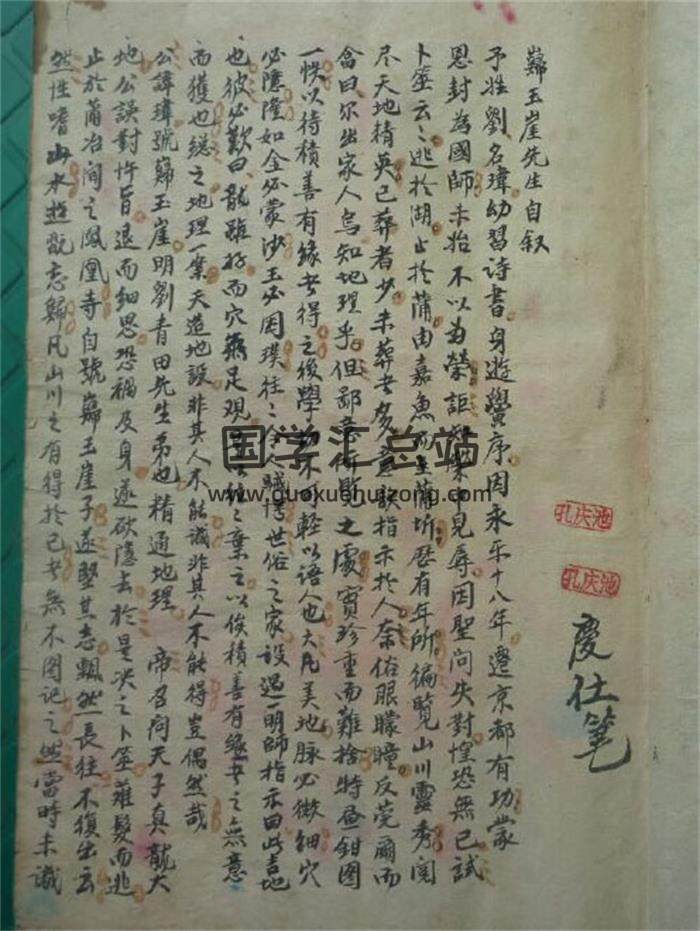 慶仕笔
孔庆池
孔庆池
巋玉崖先生自叙
予姓劉名瑋幼習詩書身遊黌序因永乐十八年遷京都有功蒙
恩封為國師未始不以為榮詎知榮中見辱因聖問失對惶恐無已試
卜筮云云逃於湖止於蒲由嘉魚而至蒲圻歷有年所徧覽山川靈秀閱
尽天地精英已葬者少未葬者多意欲指示於人奈俗眼矇瞳反莞爾而
會曰尔出家人烏知地理乎但鄙意所覽之處寳珍重而難捨特叠鉗图
一帙以待積善有緣者得之後學切不可輕以語人也大凡美地脉必微細穴
必隱隆如金必蒙沙玉必因璞往々令人賤愕世俗之家設遇一明師指示曰此吉地
也彼必歎曰龍雖好而穴無足观
棄之以俟積善有緣者之無意
而獲也總之地理一業天造地設非其人不能識非其人不能得豈偶然哉
公諱瑋號巋玉崖明劉青田先生弟也精通地理 帝召问天子真龍大
地公誤對忤旨退而細思恐禍及身遂欲隱去於是决之卜筮薙髮而逃
止於蒲冶间之鳳凰寺自號巋玉崖子遂堅其志飄然長往不復出云
然性嗜山水遊翫忘歸凡山川之有得於己者無不图记之然當時未識
国学汇总站
www.guoxuehuizong.com